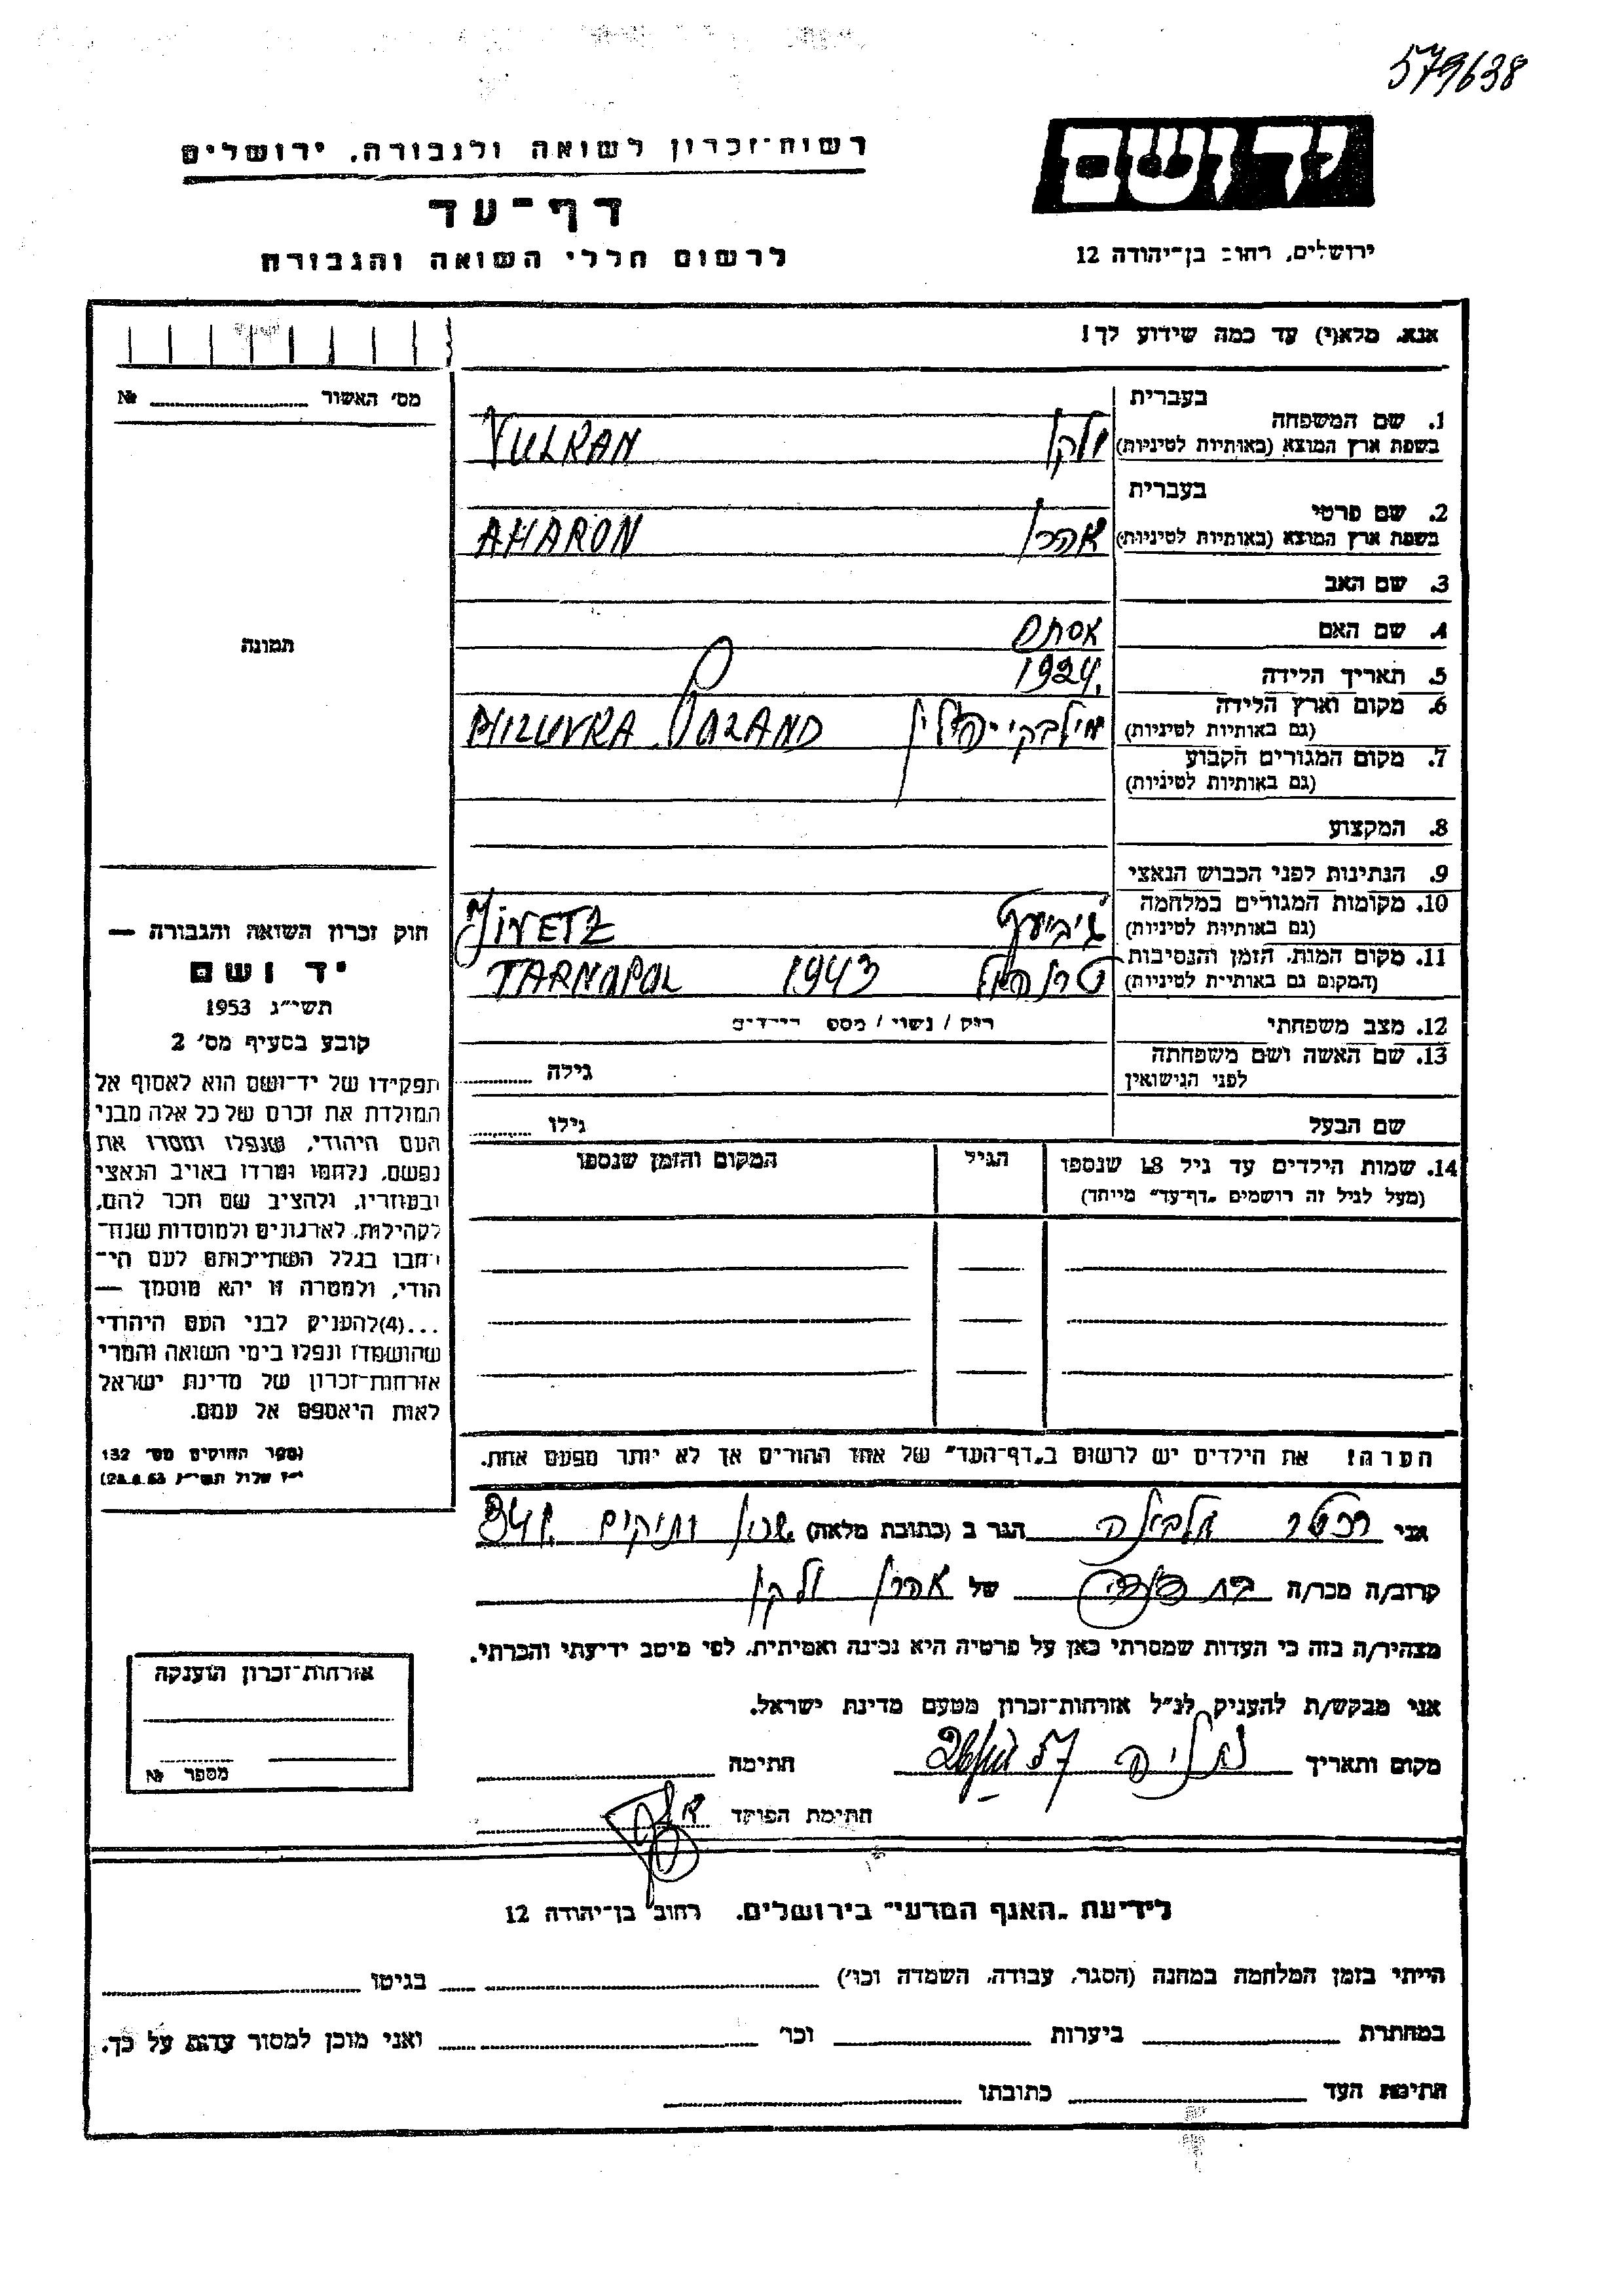 579638
יד ושם
ירושלים, רחוב בן־יהודה 12
רשות־זכרון לשואה ולגבורה, ירושלים
דף־עד
לרשום חללי השואה והגבורה
אנא, מלא(י) עד כמה שידוע לך!
מס׳ האשור № 
בעברית
1. שם המשפחה
בשפת ארץ המוצא (באותיות לטיניות)
ולקן VULKAN
בעברית
2. שם פרטי
בשפת ארץ המוצא (באותיות לטיניות)
אהרן AHARON
3. שם האב
4. שם האם
אסתר
5. תאריך הלידה 1924.
6. מקום וארץ הלידה
(גם באותיות לטיניות)
POLAND
7. מקום המגורים הקבוע
(גם באותיות לטיניות)
8. המקצוע
9. הנתינות לפני הכבוש הנאצי
10. מקומות המגורים במלחמה
(גם באותיות לטיניות)
11. מקום המות, הזמן והנסיבות
(המקום גם באותיות לטיניות)
טרנופול 1943 TARNOPOL
12. מצב משפחתי
רוק / נשוי / מספר ילדים
13. שם האשה ושם משפחתה
לפני הנישואין
גילה
שם הבעל
גילו
14. שמות הילדים עד גיל 18 שנספו
(מעל לגיל זה רושמים „דף־עד״ מיוחד)
הגיל
המקום והזמן שנספו
הערה! את הילדים יש לרשום ב„דף־העד״ של אחד ההורים אך לא יותר מפעם אחת.
תמונה
חוק זכרון השואה והגבורה —
יד ושם
תשי״ג 1953
קובע בסעיף מס׳ 2
תפקידו של יד־ושם הוא לאסוף אל
המולדת את זכרם של כל אלה מבני
העם היהודי, שנפלו ומסרו את
נפשם, נלחמו ומרדו באויב הנאצי
ובעוזריו, ולהציב שם וזכר להם,
לקהילות, לארגונים ולמוסדות שנח־
רבו בגלל השתייכותם לעם הי־
הודי, ולמטרה זו יהא מוסמך —
...(4)להעניק לבני העם היהודי
שהושמדו ונפלו בימי השואה והמרי
אזרחות־זכרון של מדינת ישראל
לאות היאספם אל עמם.
(ספר החוקים מס׳ 132
י״ז אלול תשי״ג 28.8.53)
אני הגר ב (כתובת מלאה) ותיקים
קרוב/ה מכר/ה בת דודה של אהרן ולקן
מצהיר/ה בזה כי העדות שמסרתי כאן על פרטיה היא נכונה ואמיתית, לפי מיטב ידיעתי והכרתי.
אני מבקש/ת להעניק לנ״ל אזרחות־זכרון מטעם מדינת ישראל.
מקום ותאריך נתניה 57 חתימה
חתימת הפוקד
אזרחות־זכרון הוענקה
מספר №
לידיעת „האגף המדעי״ בירושלים, רחוב בן־יהודה 12
הייתי בזמן המלחמה במחנה (הסגר, עבודה, השמדה וכו׳) בגיטו
במחתרת ביערות וכו׳ ואני מוכן למסור עדות על כך.
חתימת העד כתובתו